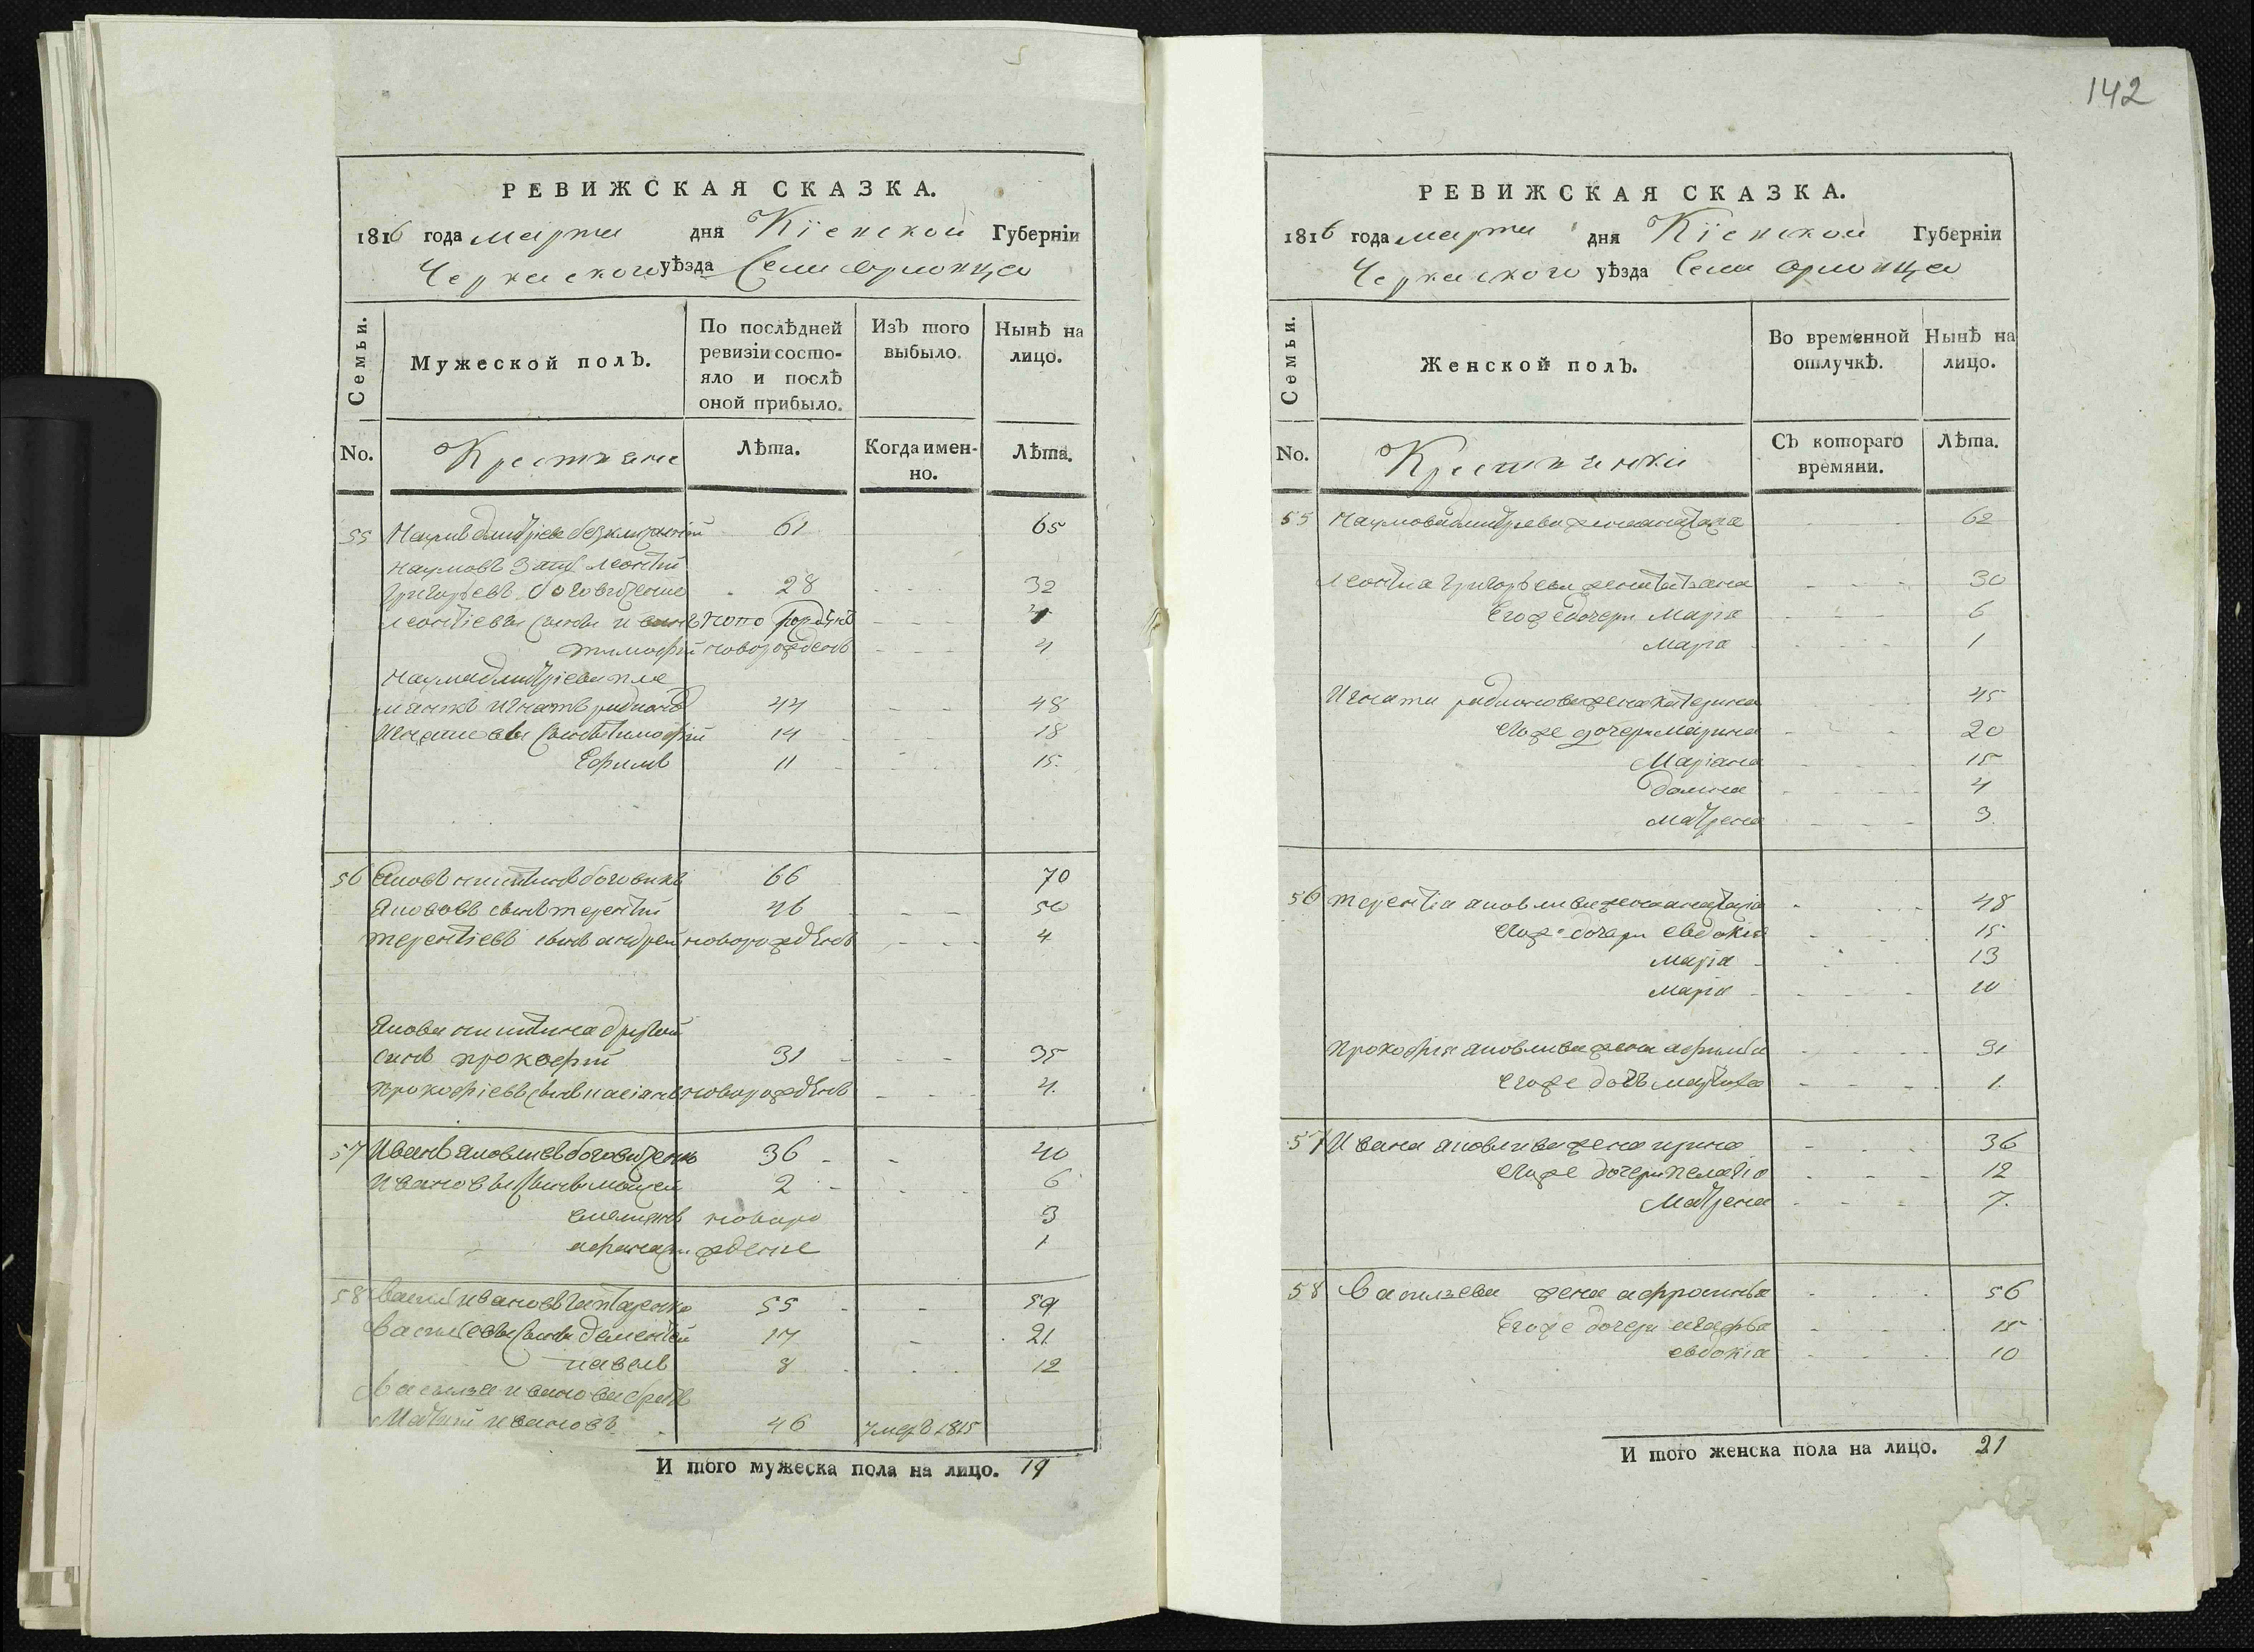 142
РЕВИЖСКАЯ СКАЗКА.
1816 года марта дня Кіевской Губерніи
Черкаского уѣзда Села Орловца
Семьи.
Мужеской полъ.
По послѣдней ревизіи состояло и послѣ оной прибыло.
Изъ того выбыло.
Нынѣ на лицо.
No.
Крестяне
Лѣта.
Когда именно.
Лѣта.
55 Наумъ Дмитріевъ 61 65
Наумовъ зять леонтій
Григорьевъ 28 32
леонтіевы
тимофей новорожденъ 4
Наума дмитріева пле
мяникъ Игнатъ радионовъ 44 48
сынъ тимофій 14 18
Ефимъ 11 15
56 Яковъ никитинъ 66 70
Яковъ сынъ терентий 46 50
терентіевъ сынъ андрей новорожденъ 4
Якова никитина другой
синъ прокофий 31 35
прокофіевъ сынъ касіанъ новорожденъ 4
57 Иванъ яковлевъ 36 40
Ивановы сынъ мойсей 2 6
емелиянъ новоро 3
афанасий ждение 1
58 василий ивановъ 55 59
Васильевы сыны дементей 17 21
павелъ 8 12
василия иванова братъ
ивановъ 46 умеръ 1815
И того мужеска пола на лицо. 19
РЕВИЖСКАЯ СКАЗКА.
1816 года марта дня Кіевской Губерніи
Черкаского уѣзда Села орловца
Семьи.
Женской полъ.
Во временной отлучкѣ.
Нынѣ на лицо.
No.
Крестянки
Съ котораго времяни.
Лѣта.
55 Наумова дмитрева жена 62
леонтиа григорьева жена татьяна 30
Егоже дочери Марія 6
Марія 1
Игната радионова жена катерина 45
Егоже дочери Марина 20
Маріана 15
домна 4
Матрена 3
56 терентіа яковлева жена 48
Егоже дочери евдокия 15
Марія 13
Марія 10
прокофия яковлева жена афимия 31
Егоже дочь марѳа 1
57 Ивана яковлева жена ирина 36
Егоже дочери пелагіа 12
Матрена 7
58 василева жена афросиния 56
Егоже дочери агафья 15
евдокіа 10
И того женска пола на лицо. 21